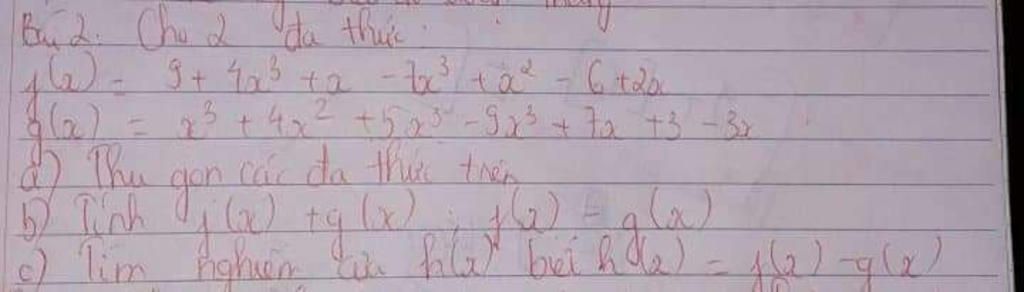 Bài 2: Cho 2 đa thức:
f(x) = 9 + 4x³ + x - 7x³ + x² - 6 + 2x
g(x) = x³ + 4x² + 5x³ - 9x³ + 7x + 3 - 3x
a) Thu gọn các đa thức trên
b) Tính f(x) + g(x) ; f(x) - g(x)
c) Tìm nghiệm của h(x) biết h(x) = f(x) - g(x)